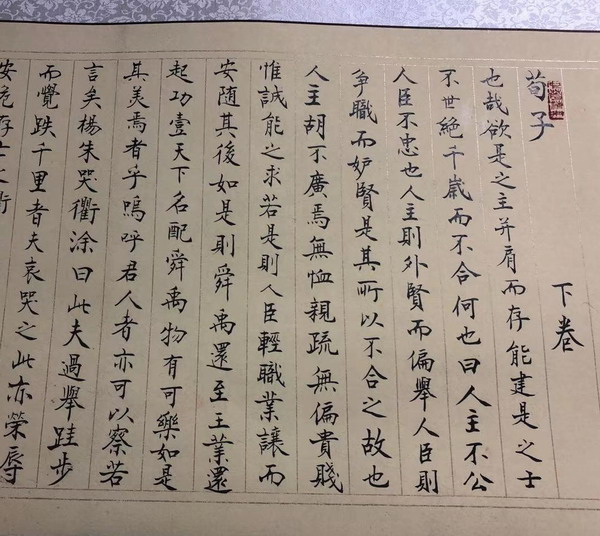 荀子 下卷
也哉欲是之主并肩而存能建是之士
不世絕千歲而不合何也曰人主不公
人臣不忠也人主則外賢而偏舉人臣則
爭職而妒賢是其所以不合之故也
人主胡不廣焉無恤親疏無偏貴賤
惟誠能之求若是則人臣輕職業讓而
安隨其後如是則舜禹還至王業還
起功壹天下名配舜禹物有可樂如是
其美焉者乎嗚呼君人者亦可以察若
言矣楊朱哭衢涂曰此夫過舉跬步
而覺跌千里者夫哀哭之此亦榮辱
安危存亡之衢